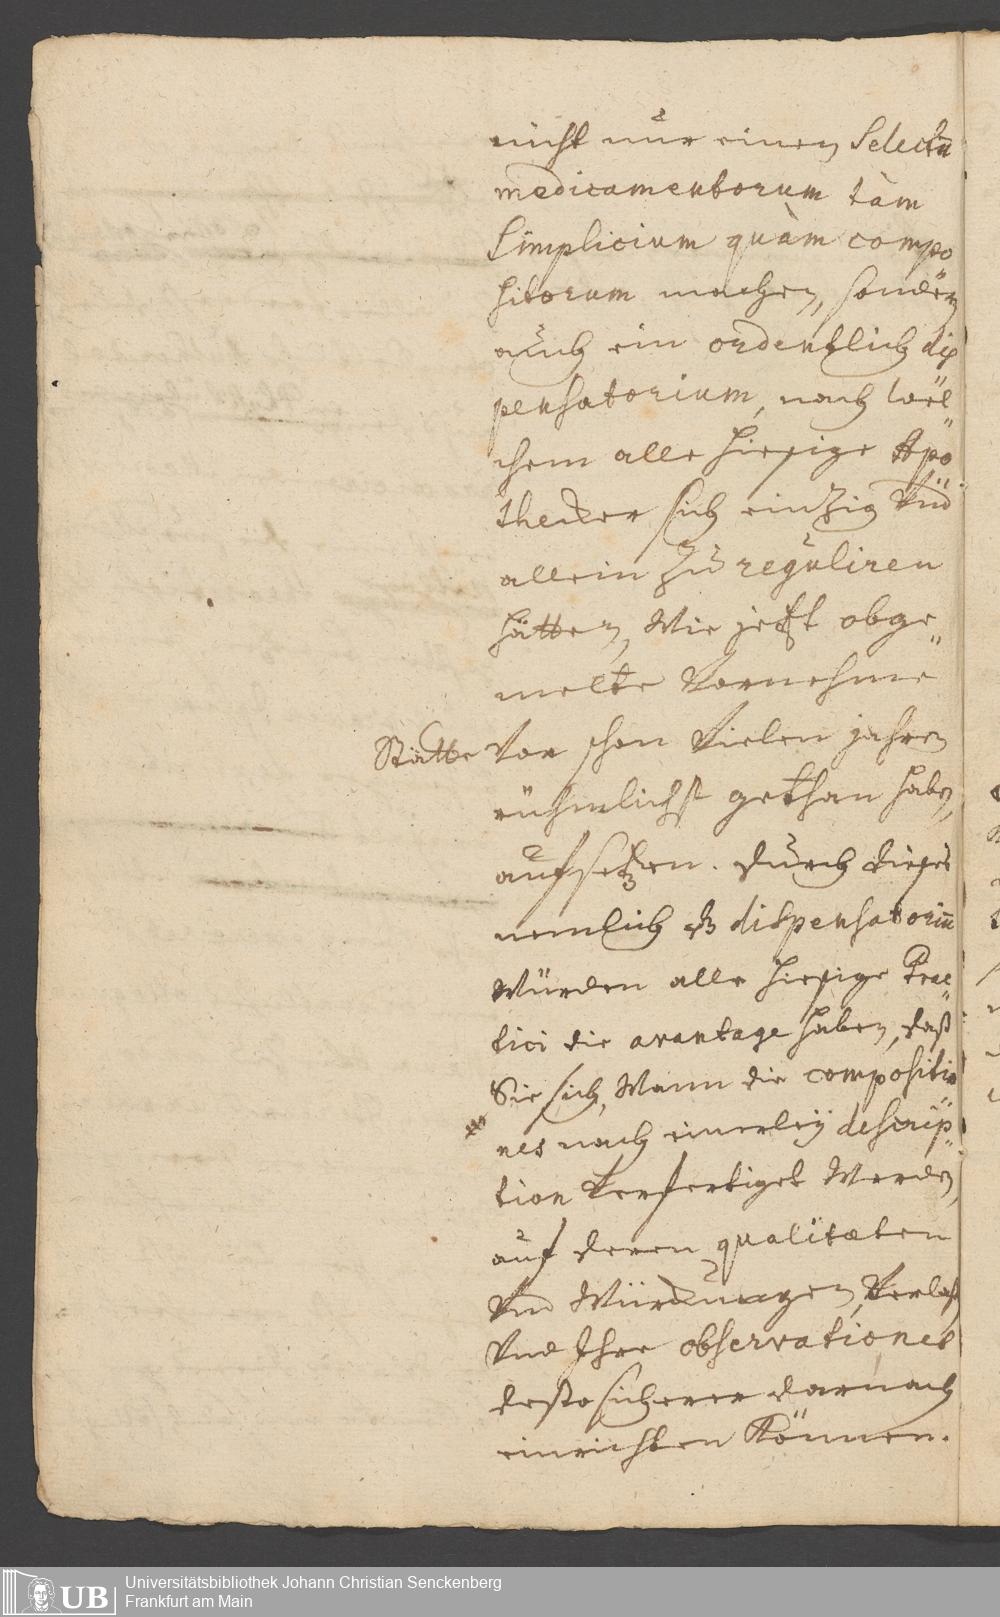 nicht nur einen Selectū
medicamentorum tàm
Simplicium quàm compo
sitorum machen, sondern
auch ein ordentlich dis
pensatorium, nach wel
chem alle hiesige Apo
thecker sich einzig Vnd
allein zu reguliren
hätten, Wie jetzt obge
melte Vornehme
Stätte Vor schon Vielen jahren
rühmlichst gethan haben,
aufsetzen. Durch dieses
nemlich dispensatoriū
Würden alle hiesige Prac
tici die avantage haben, daß
Sie sich, Wann die compositio
nes nach einerley descrip
tion Verfertiget Werden,
auf deren qualitæten
Vnd Würckungen, Verlaßen
Vnd Ihre observationes
desto sicherer darnach
einrichten Können.
Universitätsbibliothek Johann Christian Senckenberg
Frankfurt am Main
UB